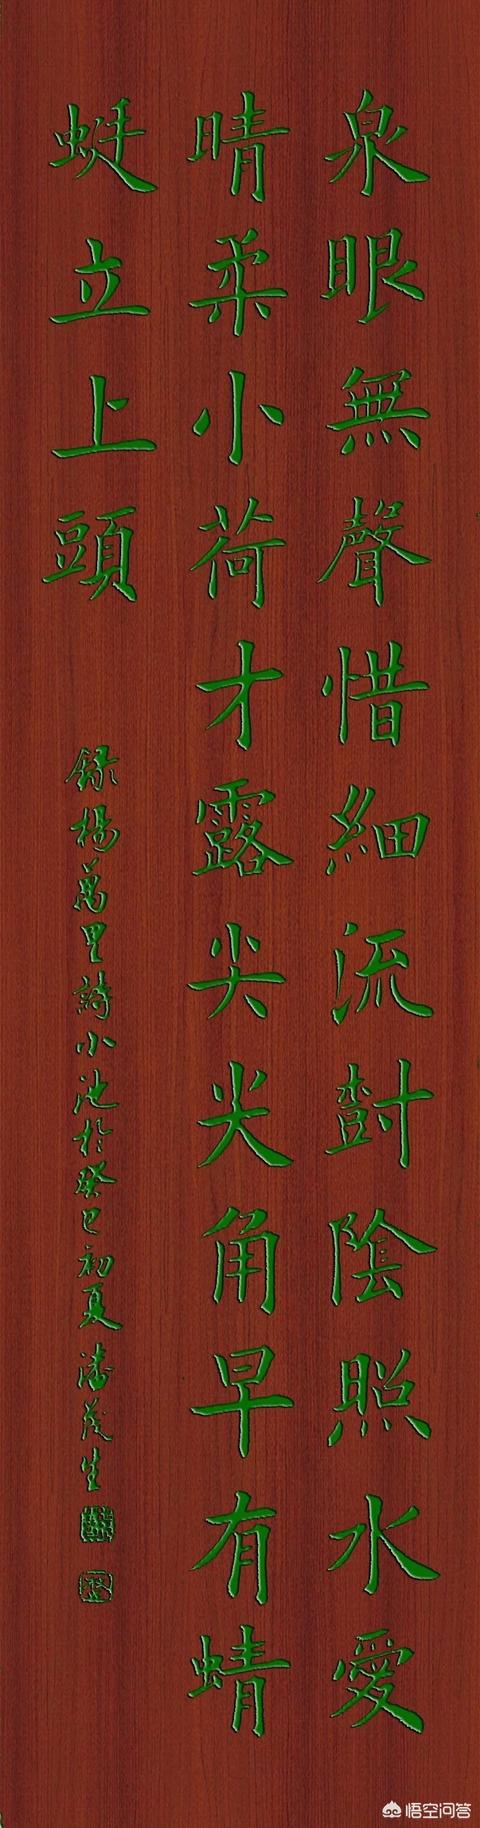 泉眼無聲惜細流樹陰照水愛
晴柔小荷才露尖尖角早有蜻
蜓立上頭
録楊萬里詩小池於癸巳初夏潘茂生
悟空问答